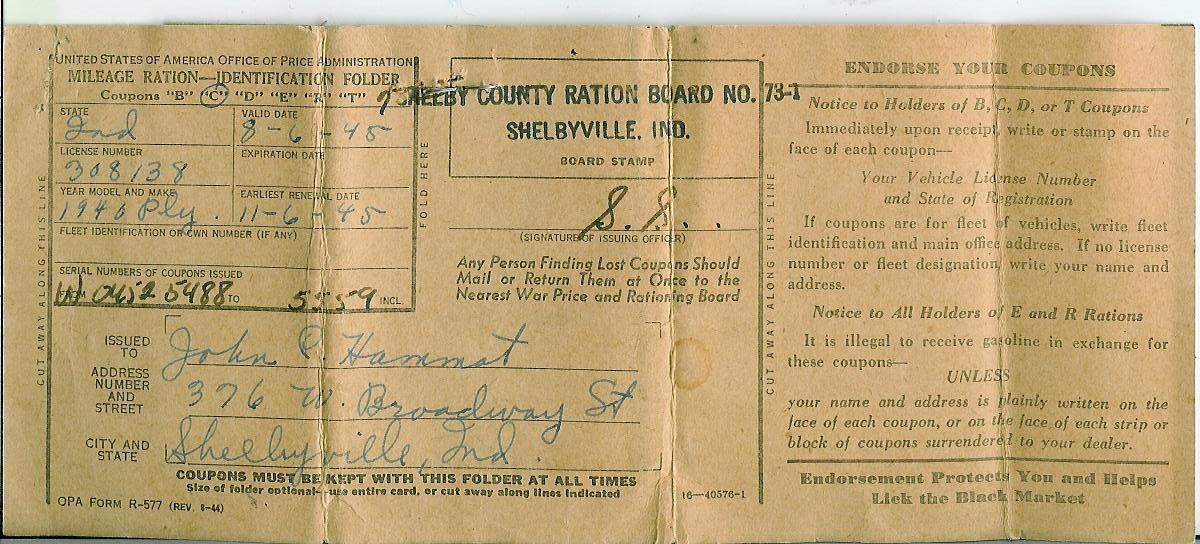 UNITED STATES OF AMERICA OFFICE OF PRICE ADMINISTRATION
MILEAGE RATION—IDENTIFICATION FOLDER
Coupons "B" "C" "D" "E" "R" "T"
STATE
Ind
VALID DATE
8-6-45
LICENSE NUMBER
308138
EXPIRATION DATE
YEAR MODEL AND MAKE
1940 Ply.
EARLIEST RENEWAL DATE
11-6-45
FLEET IDENTIFICATION OR OWN NUMBER (IF ANY)
SERIAL NUMBERS OF COUPONS ISSUED
5488 TO 5559 INCL.
CUT AWAY ALONG THIS LINE
FOLD HERE
ISSUED TO
John P. Hammat
ADDRESS NUMBER AND STREET
376 W. Broadway St
CITY AND STATE
Shelbyville, Ind.
COUPONS MUST BE KEPT WITH THIS FOLDER AT ALL TIMES
Size of folder optional—use entire card, or cut away along lines indicated
OPA FORM R-577 (REV. 8-44)
16—40576-1
SHELBY COUNTY RATION BOARD NO. 73-1
SHELBYVILLE, IND.
BOARD STAMP
S. S.
(SIGNATURE OF ISSUING OFFICER)
Any Person Finding Lost Coupons Should
Mail or Return Them at Once to the
Nearest War Price and Rationing Board
CUT AWAY ALONG THIS LINE
ENDORSE YOUR COUPONS
Notice to Holders of B, C, D, or T Coupons
Immediately upon receipt, write or stamp on the
face of each coupon—
Your Vehicle License Number
and State of Registration
If coupons are for fleet of vehicles, write fleet
identification and main office address. If no license
number or fleet designation, write your name and
address.
Notice to All Holders of E and R Rations
It is illegal to receive gasoline in exchange for
these coupons—
UNLESS
your name and address is plainly written on the
face of each coupon, or on the face of each strip or
block of coupons surrendered to your dealer.
Endorsement Protects You and Helps
Lick the Black Market